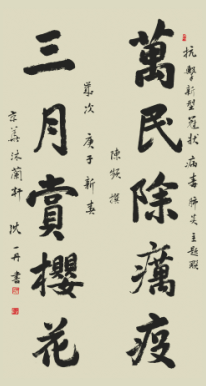 抗擊新型冠狀病毒肺炎主題聯
萬民除癘疫
陳 撰
歲次庚子新春
三月賞櫻花
京華沐蘭軒 沈一丹書